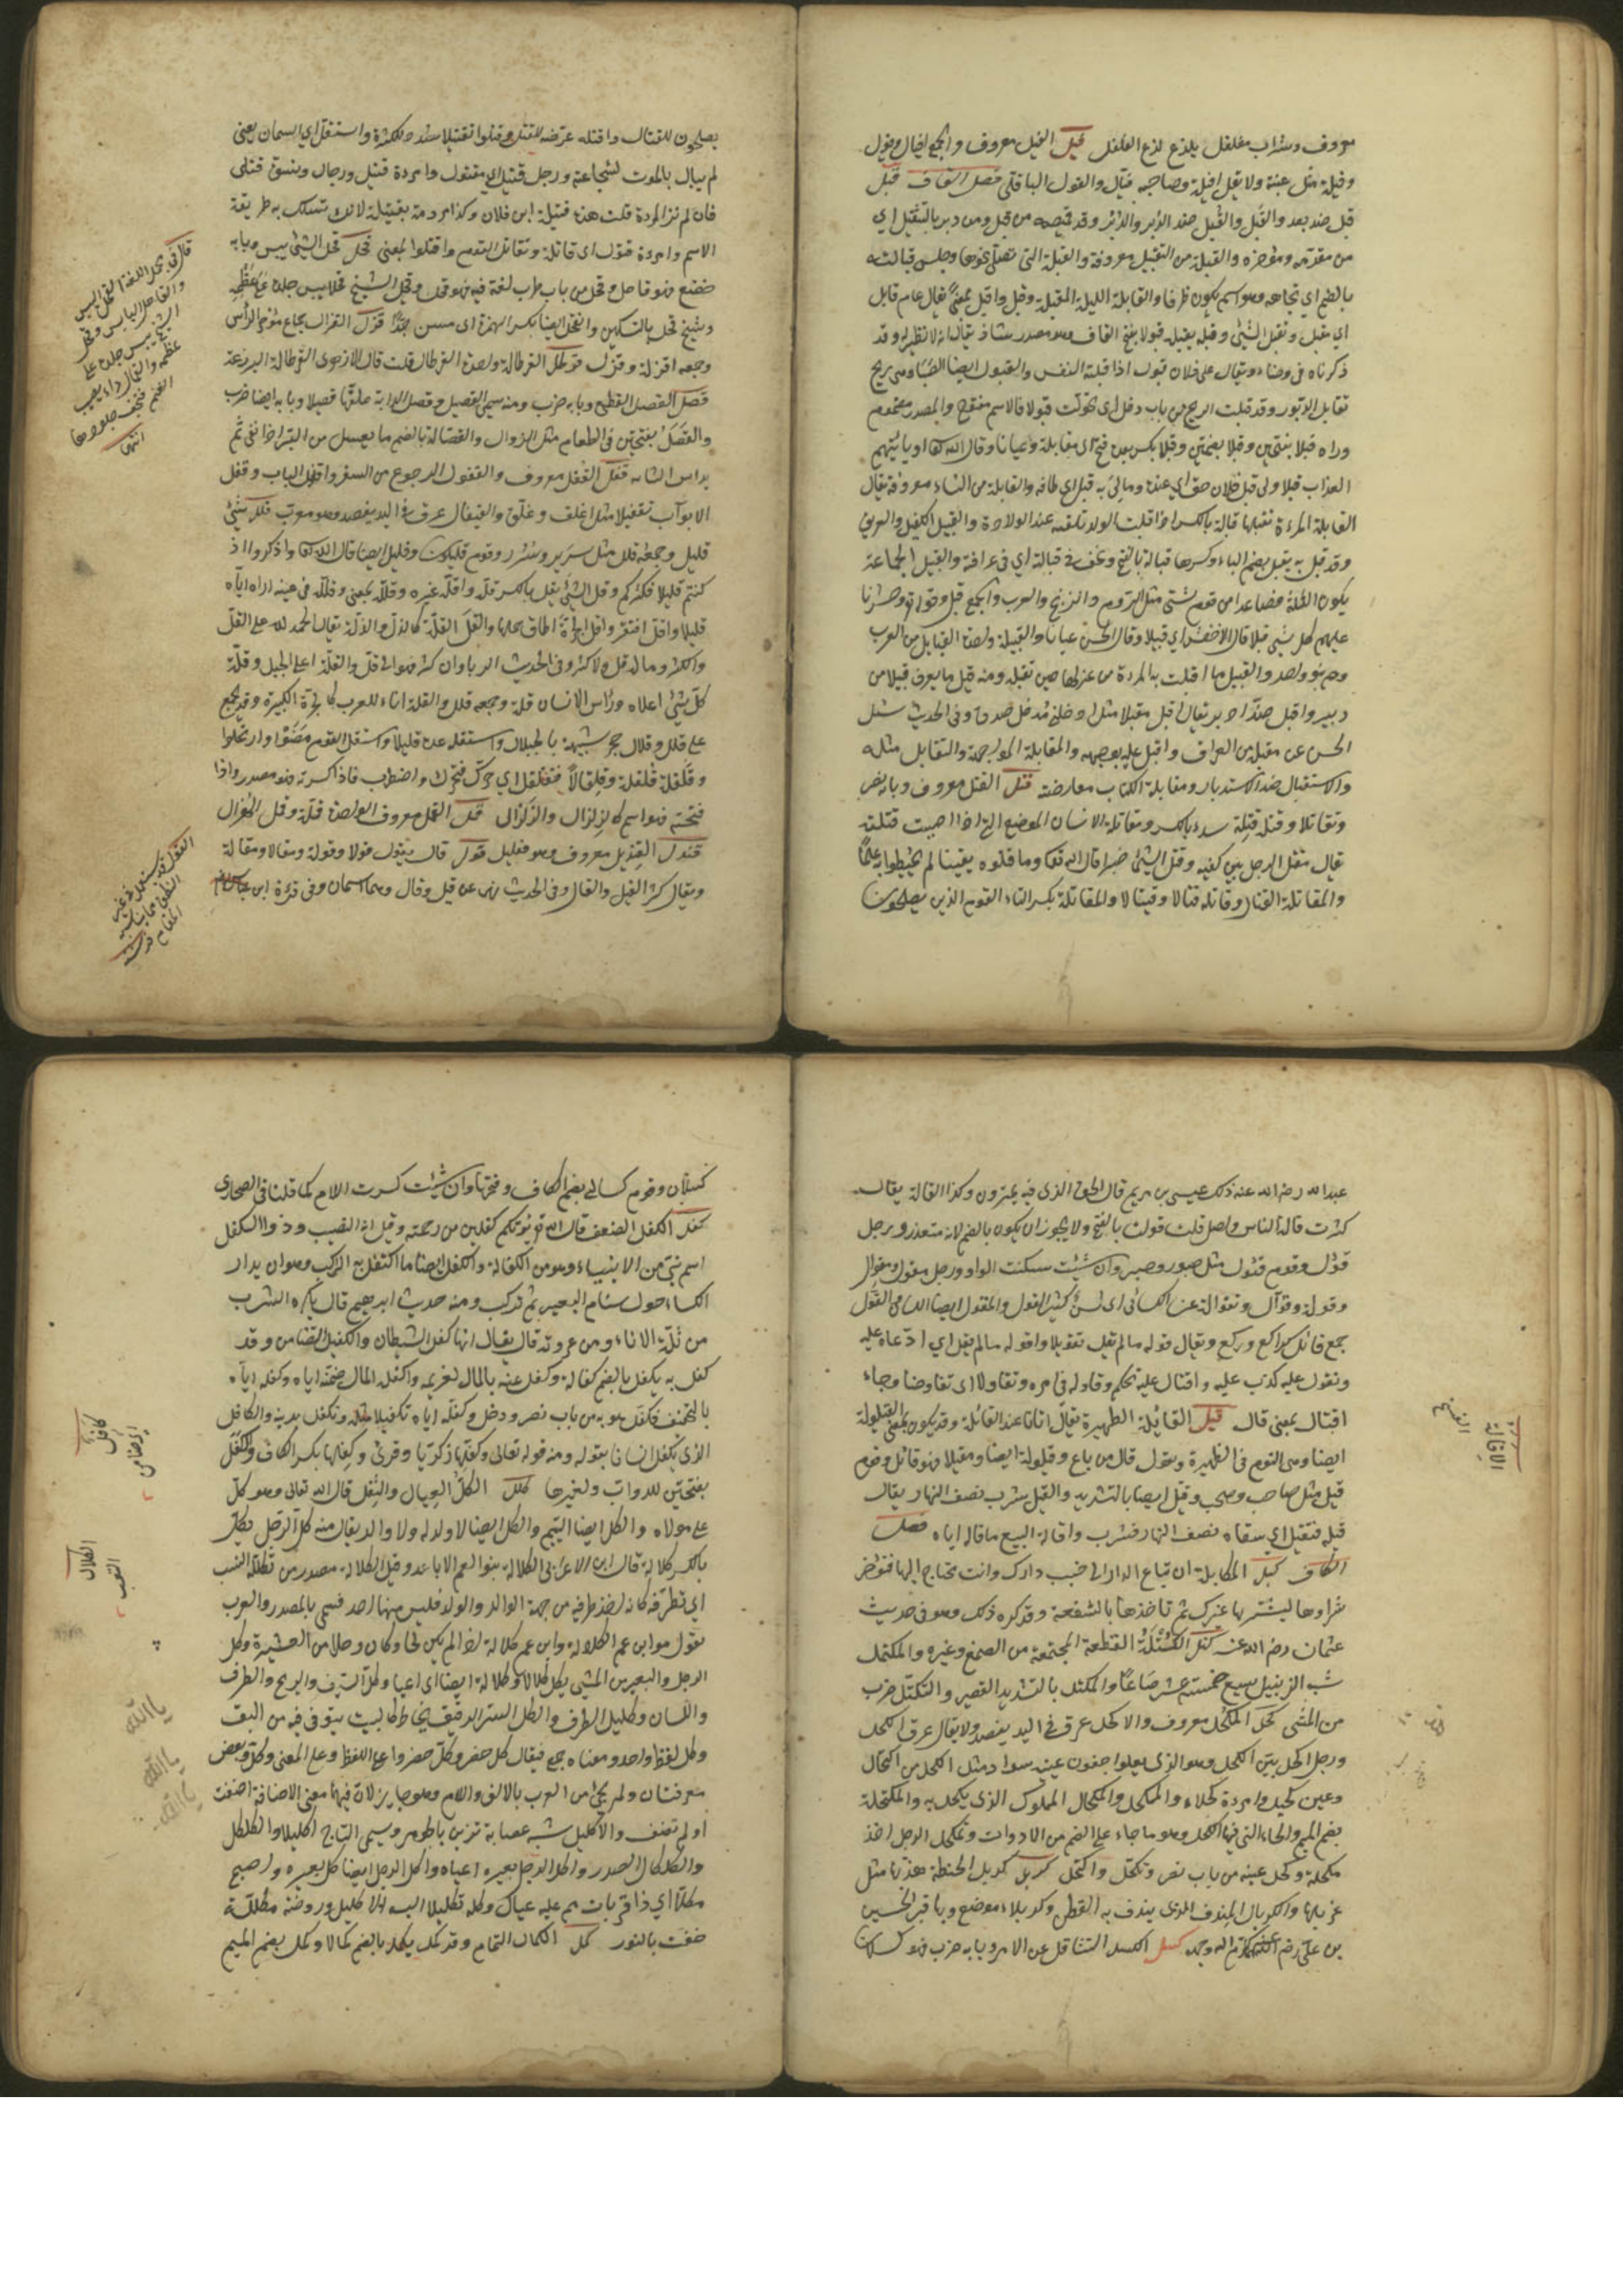 معروف وشراب مفلفل يلذع لذع الفلفل فيل الفيل معروف والجمع افيال وفيول
وفيلة مثل عنبة ولا تقل افيلة وصاحبه فيال والفول الباقلى فصل القاف قبل
قبل ضد بعد والقبل والقبل ضد الدبر والدبر وقد قميصه من قبل ومن دبر بالتثقيل اي
من مقدمه ومؤخره والقبلة من التقبيل معروفة والقبلة التي تصلى نحوها وجلس قبالته
بالضم اي تجاهه وهو اسم يكون ظرفا والقابلة الليلة المقبلة وقبل واقبل بمعنى يقال عام قابل
اي مقبل وتقبل الشئ وقبله يقبله قبولا بفتح القاف وهو مصدر شاذ يقال انه لا نظير له وقد
ذكرناه في وضاء ويقال على فلان قبول اذا قبلته النفس والقبول ايضا الصبا وهي ريح
تقابل الدبور وقد قبلت الريح من باب دخل اي تحولت قبولا فالاسم مفتوح والمصدر مضموم
وراه قبلا بفتحتين وقبلا بضمتين وقبلا بكسر بعده فتح اي مقابلة وعيانا وقال الله تعالى او ياتيهم
العذاب قبلا ولي قبل فلان حق اي عنده ومالي به قبل اي طاقة والقابلة من النساء معروفة يقال
القابلة المرءة تقبلها قبالة بالكسر اذا قبلت الولد تلقته عند الولادة والقبيل الكفيل والعريف
وقد قبل به يقبل بضم الباء وكسرها قبالة بالفتح ونحن في قبالته اي في عرافته والقبيل الجماعة
يكون الثلثة فصاعدا من قوم شتى مثل الروم والزنج والعرب والجمع قبل وقوله تع وحشرنا
عليهم كل شئ قبلا قال الاخفش اي قبيلا وقال الحسن عيانا والقبيلة واحدة القبايل من العرب
وهم بنو اب واحد والقبيل ما اقبلت به المرءة من غزلها حين تفتله ومنه قيل ما يعرف قبيلا من
دبير واقبل ضد ادبر يقال اقبل مقبلا مثل ادخلني مدخل صدق وفي الحديث سئل
الحسن عن مقبله من العراق واقبل عليه بوجهه والمقابلة المواجهة والتقابل مثله
والاستقبال ضد الاستدبار ومقابلة الكتاب معارضته قتل القتل معروف وبابه نصر
وتقاتلا وقتله قتلة سوء بالكسر ومقاتل الانسان المواضع التي اذا اصيبت قتلته
يقال مقتل الرجل بين كفيه وقتل الشئ خبرا قال الله تعالى وما قتلوه يقينا لم يحيطوا به علما
والمقاتلة القتال وقاتله قتالا وقيتالا والمقاتلة بكسر التاء القوم الذين يصلحون
يصلحون للقتال واقتله عرضه للقتل وقتلوا تقتيلا شدد للكثرة واستقتل اي استمات يعني
لم يبال بالموت لشجاعته ورجل قتيل اي مقتول وامرءة قتيل ورجال ونسوة قتلى
فان لم تذكر المرءة قلت هذه قتيلة بني فلان وكذا مررت بقتيلة لانك تسلك به طريقة
الاسم وامرءة قتول اي قاتلة وتقاتل القوم واقتتلوا بمعنى قحل قحل الشئ يبس وبابه
خضع فهو قاحل وقحل من باب طرب لغة فيه فهو قحل وقحل الشيخ قحلا يبس جلده على عظمه
وشيخ قحل بالتسكين وانقحل ايضا بكسر الهمزة اي مسن جدا قذل القذال جماع مؤخر الرأس
وجمعه اقذلة وقذل قرطل القرطالة واحدة القرطال قلت قال الازهري القرطالة البرذعة
قصل القصل القطع وبابه ضرب ومنه سمي القصيل وقصل الدابة علفها قصيلا وبابه ايضا ضرب
والقصل بفتحتين في الطعام مثل الزوان والقصالة بالضم ما يعزل من البر اذا نقي ثم
يداس الثانية قفل القفل معروف والقفول الرجوع من السفر واقفل الباب وقفل
الابواب تقفيلا مثل اغلق وغلق والقيفال عرق في اليد يفصد وهو معرب قلل شئ
قليل وجمعه قلل مثل سرير وسرر وقوم قليلون وقليل ايضا قال الله تعالى واذكروا اذ
كنتم قليلا فكثركم وقل الشئ يقل بالكسر قلة واقله غيره وقلله بمعنى وقلله في عينه اراه اياه
قليلا واقل افتقر واقل الجرة اطاق حملها والقل القلة كالذل والذلة يقال الحمد لله على القل
والكثر وماله قل ولا كثر وفي الحديث الربا وان كثر فهو الى قل والقلة اعلى الجبل وقلة
كل شئ اعلاه ورأس الانسان قلة وجمعه قلل والقلة اناء للعرب كالجرة الكبيرة وقد يجمع
على قلل وقلال هجر شبيهة بالجبال واستقله عده قليلا واستقل القوم مضوا وارتحلوا
وقلقله قلقلة وقلقالا فتقلقل اي حرك فتحرك واضطرب فاذا كسرته فهو مصدر واذا
فتحته فهو اسم كالزلزال والزلزال قمل القمل معروف الواحدة قملة وقمل
قندل القنديل معروف وهو فعليل قول قال يقول قولا وقولة ومقالا ومقالة
ويقال كثر القيل والقال وفي الحديث نهى عن قيل وقال وهما اسمان وفي قرءة
قال في مجمل اللغة القحل اليبس
والقاحل اليابس وقحل
الشيخ يبس جلده على
عظمه والقحال داء يصيب
الغنم فتجف جلودها
انتهى
عبد الله رضي الله عنه ذلك عيسى بن مريم قال الحق الذي فيه يمترون وكذا القالة يقال
كثرت قالة الناس واصل قلت قولت بالفتح ولا يجوز ان يكون بالضم لانه متعد ورجل
قؤل وقوم قول مثل صبور وصبر وان شئت سكنت الواو ورجل مقول ومقوال
وقولة وقوال وتقوالة عن الكسائي اي لسن كثير القول والمقول ايضا اللسان والقول
جمع قائل كراكع وركع ويقال قوله ما لم يقل تقويلا واقوله ما لم يقل اي ادعاه عليه
وتقول عليه كذب عليه واقتال عليه تحكم وقاوله في امره وتقاولا اي تفاوضا وجاء
اقتال بمعنى قال قيل القائلة الظهيرة يقال اتانا عند القائلة وقد يكون بمعنى القيلولة
ايضا وهي النوم في الظهيرة وتقول قال من باع وقيلولة ايضا ومقيلا فهو قائل وقوم
قيل مثل صاحب وصحب وقيل ايضا بالتشديد والقيل شرب نصف النهار يقال
قيله فتقيل اي سقاه نصف النهار فشرب واقاله البيع فصل
الكاف كبل المكابلة ان تباع الدار الى جنب دارك وانت محتاج اليها فتؤخر
شراءها ليشتريها غيرك ثم تاخذها بالشفعة وقد كره ذلك وهو في حديث
عثمان رضي الله عنه كتل الكتلة القطعة المجتمعة من الصمغ وغيره والمكتل
شبه الزنبيل يسع خمسة عشر صاعا والمكتل بالتشديد القصير والتكتل ضرب
من المشي كحل الكحل معروف والاكحل عرق في اليد يفصد ولا يقال عرق الاكحل
ورجل اكحل بين الكحل وهو الذي يعلو جفون عينيه سواد مثل الكحل من اكتحال
وعين كحيل وامرءة كحلاء والمكحل والمكحال الملمول الذي يكحل به والمكحلة
بضم الميم والحاء التي فيها الكحل وهو ما جاء على الضم من الادوات وتمكحل الرجل اخذ
مكحلة وكحل عينه من باب نصر وتكحل واكتحل كربل كربل الحنطة هذبها مثل
غربلها والكربال المندف الذي يندف به القطن وكربلاء موضع وبها قبر الحسين
بن علي كسل الكسل التثاقل عن الامر وبابه طرب فهو كسلان
كسلان وقوم كسالى بضم الكاف وفتحها وان شئت كسرت اللام كما قلنا في الصحاري
كفل الكفل الضعف قال الله تع يؤتكم كفلين من رحمته وقيل انه النصيب وذو الكفل
اسم نبي من الانبياء وهو من الكفالة والكفل ايضا ما اكتفل به الراكب وهو ان يدار
الكساء حول سنام البعير ثم يركب ومنه حديث ابرهيم قال يكره الشرب
من ثلمة الاناء ومن عروته قال يقال انها كفل الشيطان والكفيل الضامن وقد
كفل به يكفل بالضم كفالة وكفل عنه بالمال لغريمه واكفله المال ضمنه اياه وكفله اياه
بالتخفيف فكفل هو به من باب نصر ودخل وكفله اياه تكفيلا مثله وتكفل بدينه والكافل
الذي يكفل انسانا يعوله ومنه قوله تعالى وكفلها زكريا وقرئ وكفلها بكسر الفاء والكفل
بفتحتين للدواب ولغيرها كلل الكل العيال والثقل قال الله تعالى وهو كل
على مولاه والكل ايضا اليتيم والكل ايضا الذي لا ولد له ولا والد يقال منه كل الرجل يكل
بالكسر كلالة قال ابن الاعرابي الكلالة بنو العم الاباعد وقيل الكلالة مصدر من تكلله النسب
اي تطرفه كانه اخذ طرفيه من جهة الوالد والولد فليس له منهما احد فسمي بالمصدر والعرب
تقول هو ابن عم الكلالة وابن عم كلالة اذا لم يكن لحا وكان رجلا من العشيرة وكل
الرجل والبعير من المشي يكل كلالا وكلالة ايضا اي اعيا وكل السيف والريح والطرف
واللسان وكليل الطرف والكل الستر الرقيق يخاط كالبيت يتوقى فيه من البق
وكل لفظه واحد ومعناه جمع فيقال كل حضر وكل حضروا على اللفظ وعلى المعنى وكل وبعض
معرفتان ولم يجئ من العرب بالالف واللام وهو جايز لان فيهما معنى الاضافة اضفت
او لم تضف والاكليل شبه عصابة تزين بالجوهر ويسمى التاج اكليلا والكلكل
والكلكال الصدر واكل الرجل بعيره اعياه واكل الرجل ايضا كل بعيره واصبح
مكلا اي ذا قرابات هم عليه عيال وكلله تكليلا البسه الاكليل وروضة مكللة
حفت بالنور كمل الكمال التمام وقد كمل يكمل بالضم كمالا وكمل بضم الميم
الاقالة
الفسخ
كافل
اي ضامن
الكلال
التعب
يا الله
يا الله
يا الله